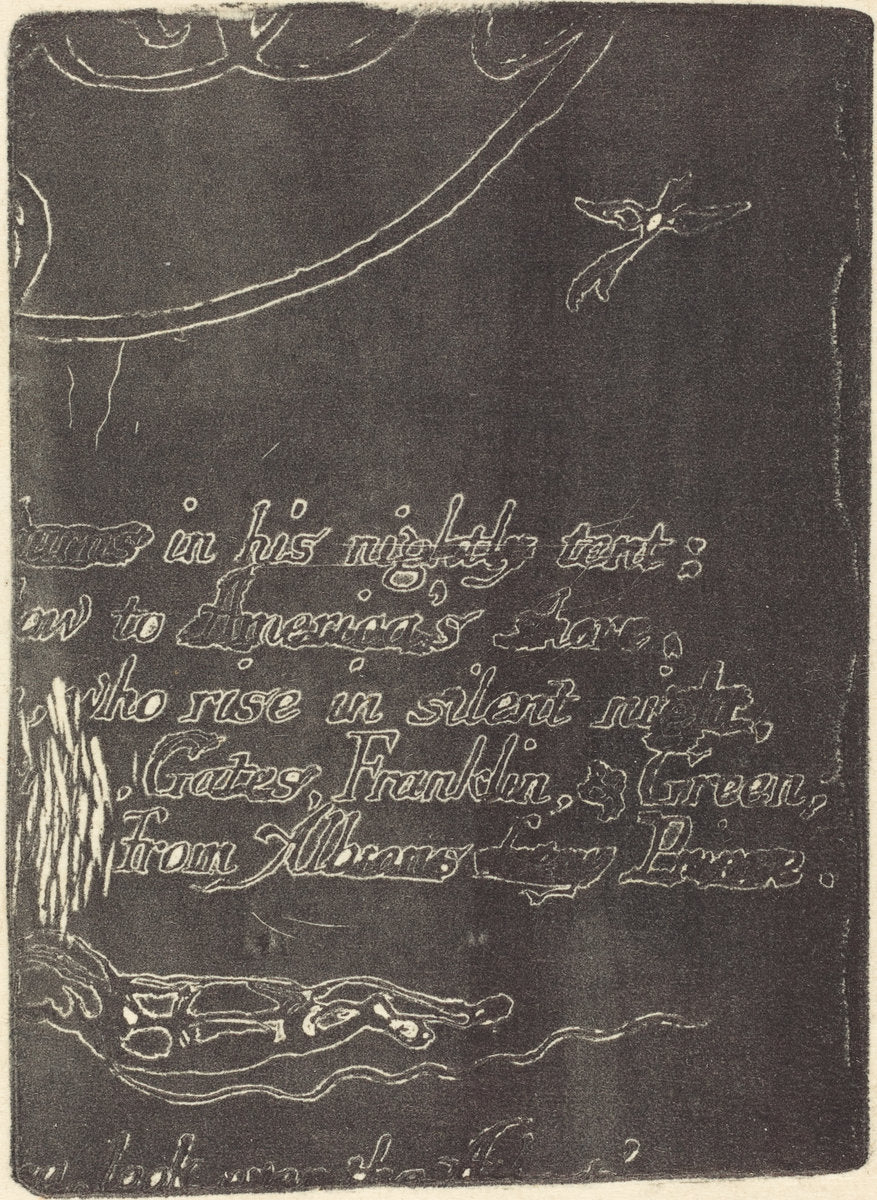 burns in his nightly tent:
low to America's shore.
, who rise in silent night,
, Gates, Franklin, & Green,
from Albions fiery Prince.
look over the